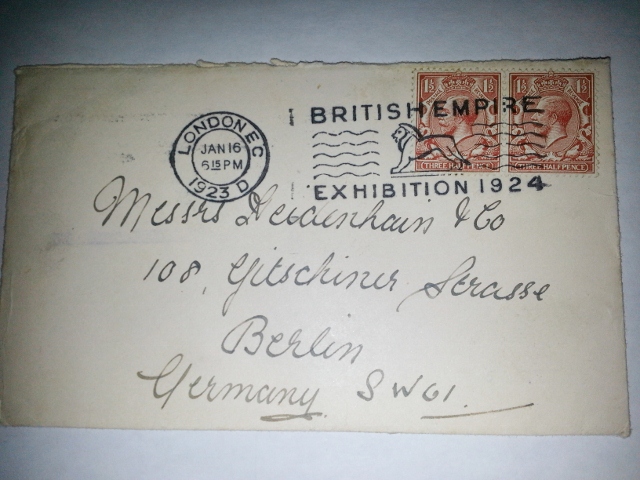 1½ 1½ 1½ 1½
BRITISH EMPIRE
LONDON.E.C
JAN 16
6 15 PM
1923 D
THREE HALFPENCE THREE HALFPENCE
EXHIBITION 1924
Messrs & Co
108, Gitschiner Strasse
Berlin
Germany SW61.